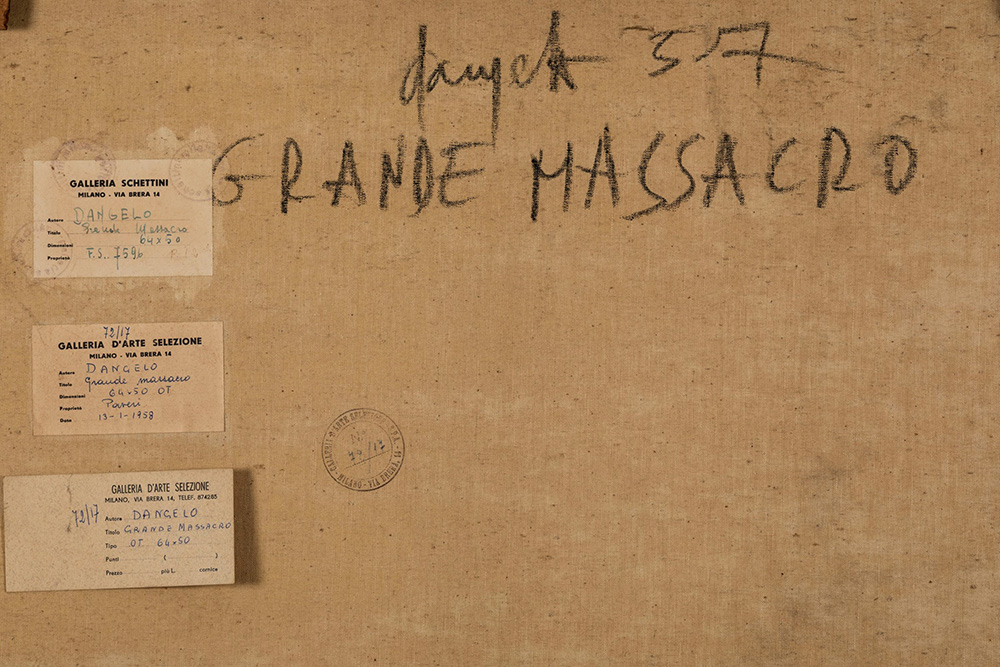 dangelo 57
GRANDE MASSACRO
GALLERIA SCHETTINI
MILANO - VIA BRERA 14
Autore DANGELO
Titolo Grande Massacro
Dimensioni 64x50
Proprietà F.S. 7596
72/17
GALLERIA D'ARTE SELEZIONE
MILANO - VIA BRERA 14
Autore DANGELO
Titolo Grande massacro
Dimensioni 64x50 OT
Proprietà
Data 13-1-1958
72/17
GALLERIA D'ARTE SELEZIONE
MILANO, VIA BRERA 14, TELEF. 874285
Autore DANGELO
Titolo GRANDE MASSACRO
Tipo OT 64x50
Punti ( )
Prezzo più L. cornice